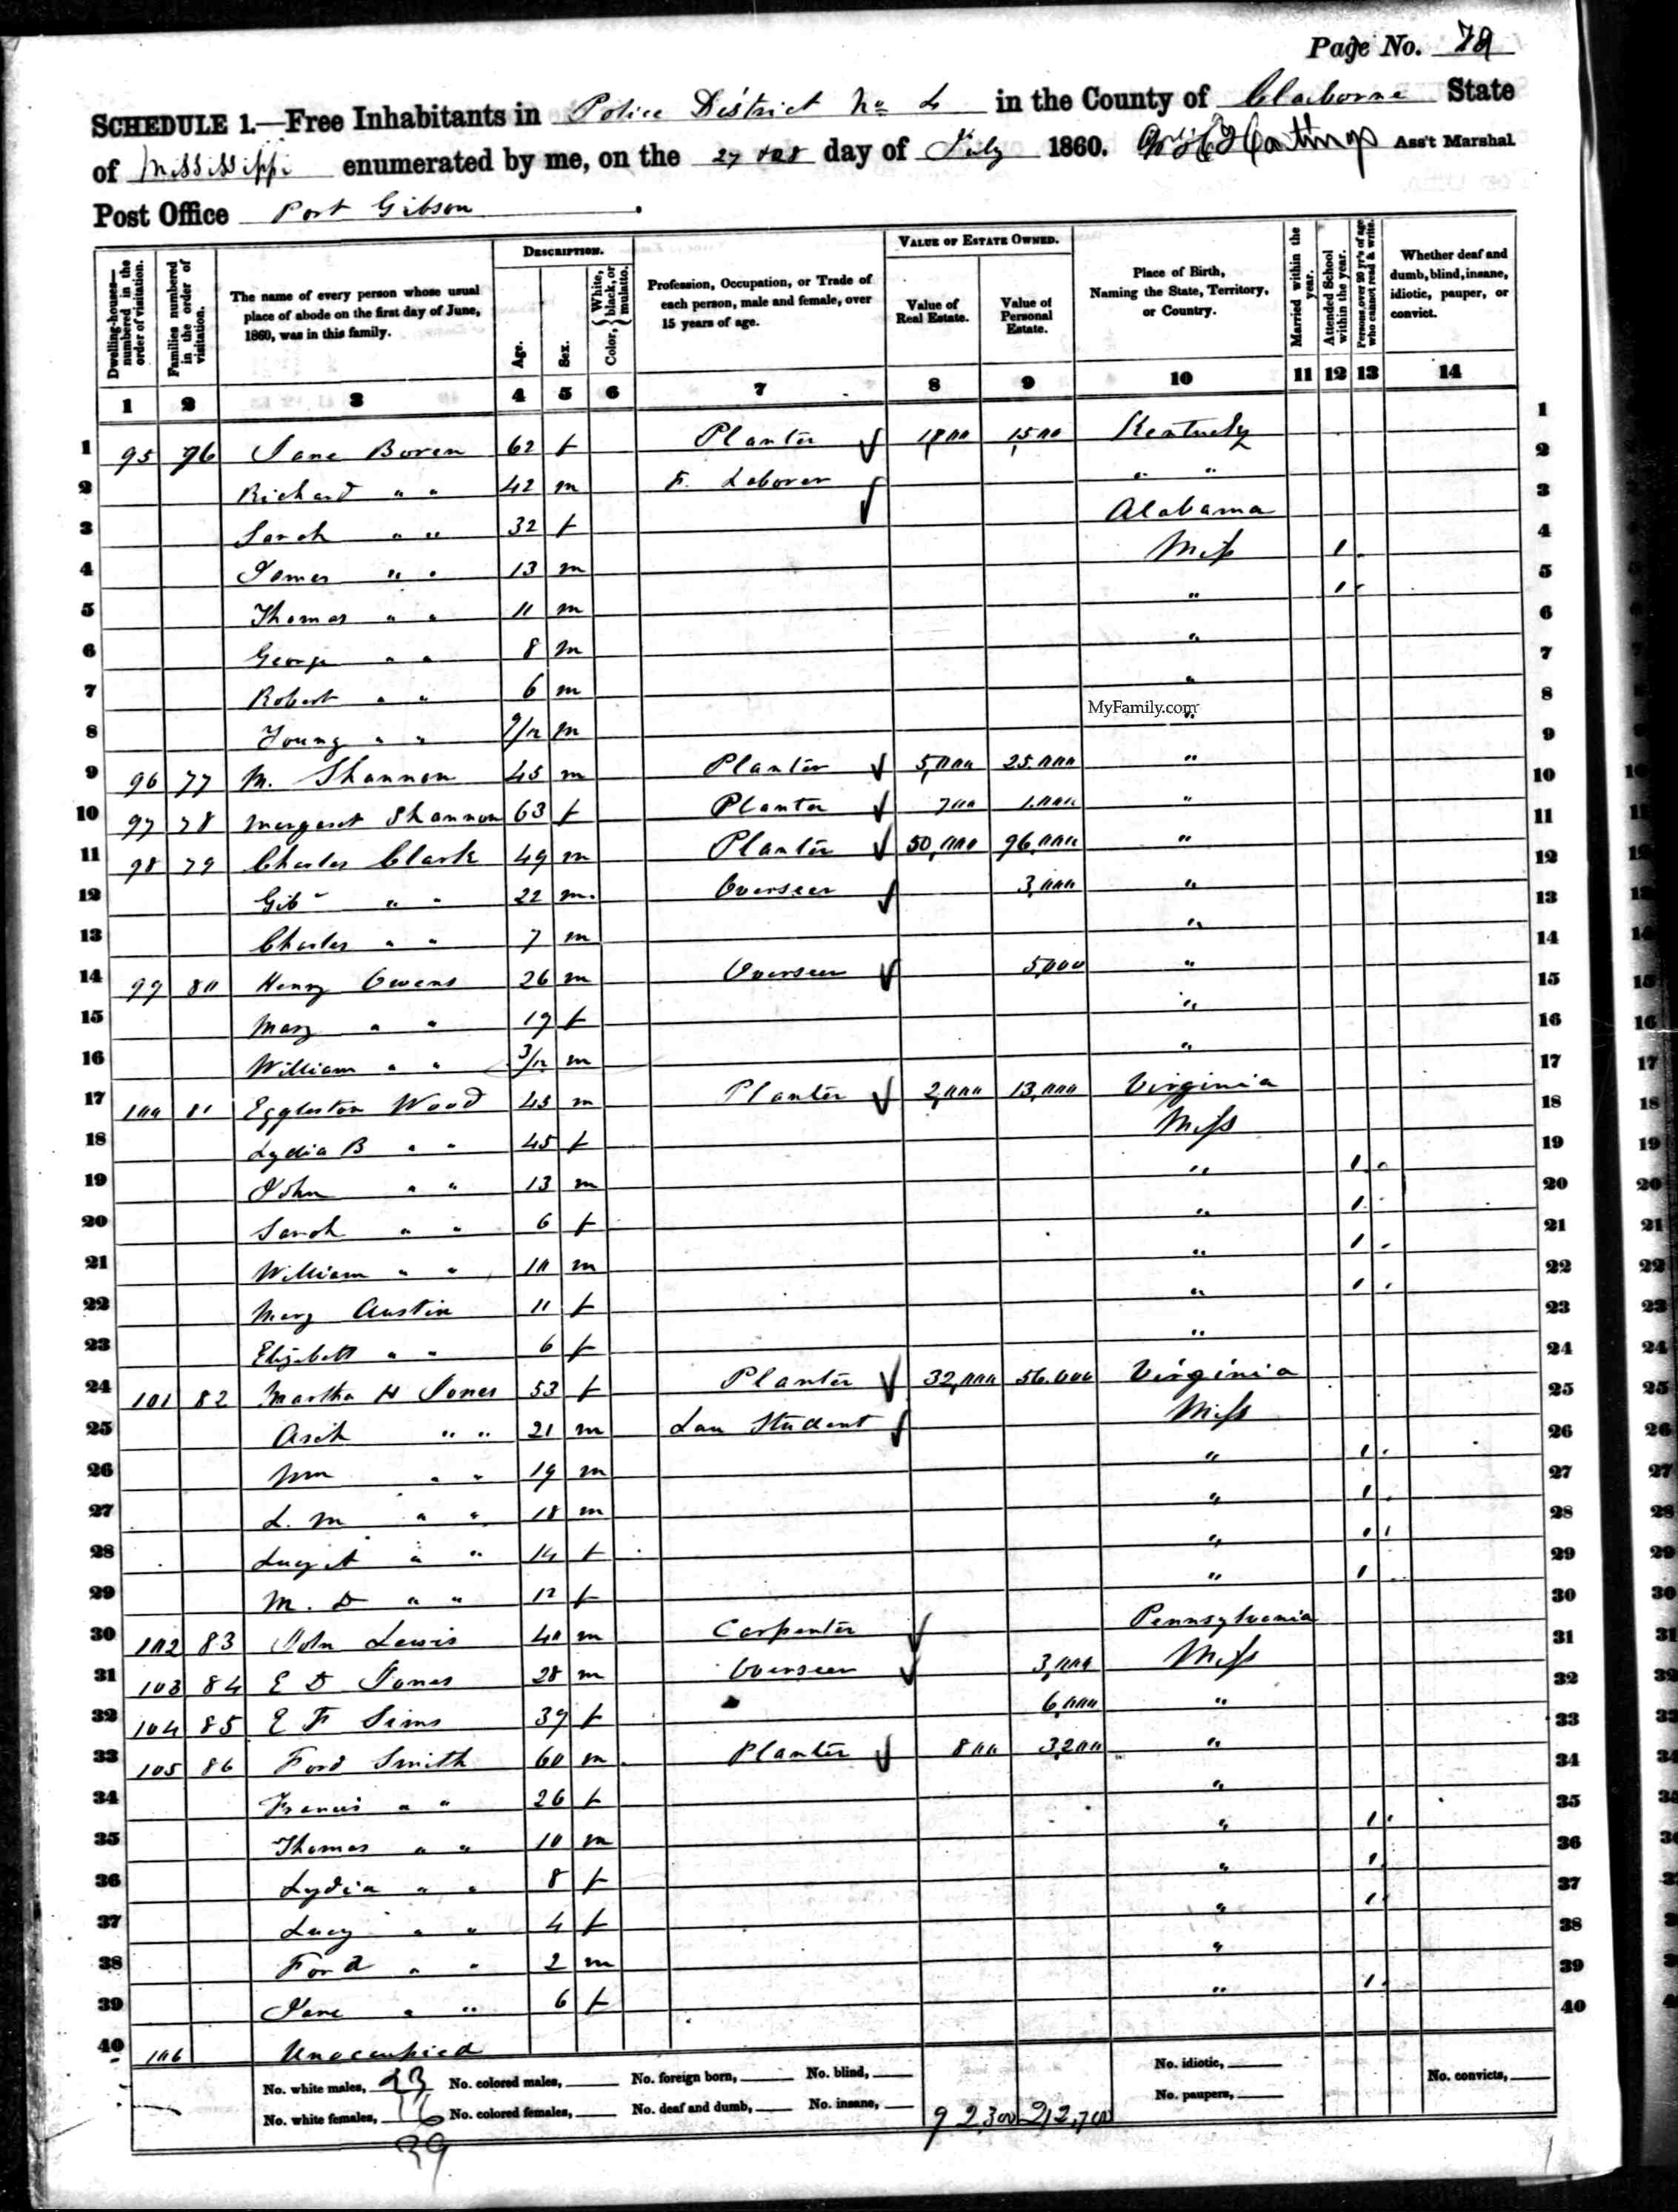 Page No. 79
SCHEDULE 1.—Free Inhabitants in Police District No 4 in the County of Claiborne State
of Mississippi enumerated by me, on the 27 & 28 day of July 1860. Hastings Ass't Marshal
Post Office Port Gibson .
Dwelling-houses—numbered in the order of visitation.
Families numbered in the order of visitation.
The name of every person whose usual place of abode on the first day of June, 1860, was in this family.
DESCRIPTION.
Age.
Sex.
Color, { White, black, or mulatto.
Profession, Occupation, or Trade of each person, male and female, over 15 years of age.
VALUE OF ESTATE OWNED.
Value of Real Estate.
Value of Personal Estate.
Place of Birth, Naming the State, Territory, or Country.
Married within the year.
Attended School within the year.
Persons over 20 yr's of age who cannot read & write.
Whether deaf and dumb, blind, insane, idiotic, pauper, or convict.
1 2 3 4 5 6 7 8 9 10 11 12 13 14
1 95 76 Jane Boren 62 f Planter 1,800 1,500 Kentucky 1
2 Richard " " 42 m F. Laborer " " 2
3 Sarah " " 32 f Alabama 3
4 James " " 13 m Miss 1 4
5 Thomas " " 11 m " 1 5
6 George " " 8 m " 6
7 Robert " " 6 m " 7
MyFamily.com
8 Young " " 9/12 m " 8
9 96 77 M. Shannon 45 m Planter 5,000 25,000 " 9
10 97 78 Margaret Shannon 63 f Planter 700 1,000 " 10
11 98 79 Charles Clark 49 m Planter 50,000 96,000 " 11
12 Gib " " 22 m. Overseer 3,000 " 12
13 Charles " " 7 m " 13
14 99 80 Henry Owens 26 m Overseer 5,000 " 14
15 Mary " " 19 f " 15
16 William " " 3/12 m " 16
17 100 81 Eggleston Wood 45 m Planter 2,000 13,000 Virginia 17
18 Lydia B " " 45 f Miss 18
19 John " " 13 m " 1 19
20 Sarah " " 6 f " 1 20
21 William " " 10 m " 1 21
22 Mary Austin 11 f " 1 22
23 Elizabeth " " 6 f " 23
24 101 82 Martha H Jones 53 f Planter 32,000 56,000 Virginia 24
25 " " 21 m Law Student Miss 25
26 Wm " " 19 m " 1 26
27 L. M " " 18 m " 1 27
28 Lucy A " " 14 f " 1 28
29 M. D " " 12 f " 1 29
30 102 83 John Lewis 40 m Carpenter Pennsylvania 30
31 103 84 E D Jones 28 m Overseer 3,000 Miss 31
32 104 85 E F Sims 39 f 6,000 " 32
33 105 86 Ford Smith 60 m Planter 800 3200 " 33
34 Francis " " 26 f " 34
35 Thomas " " 10 m " 1 35
36 Lydia " " 8 f " 1 36
37 Lucy " " 4 f " 1 37
38 Ford " " 2 m " 38
39 Jane " " 6 f " 1 39
40 106 Unoccupied 40
No. white males, 23 No. colored males, No. foreign born, No. blind, No. idiotic, No. convicts,
No. white females, 16 No. colored females, No. deaf and dumb, No. insane, 92,300 212,700 No. paupers,
39